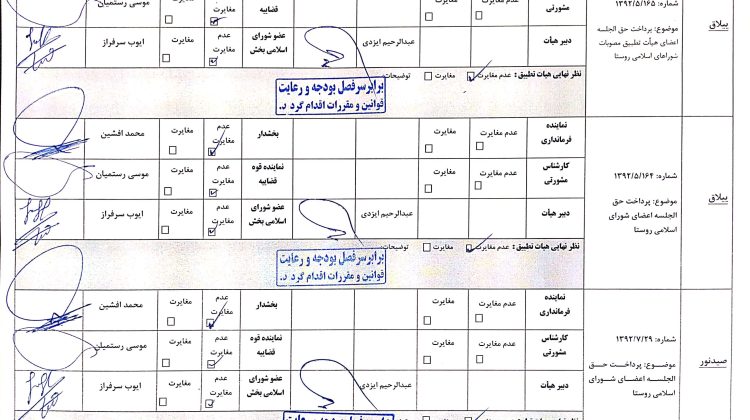 ییلاق
شماره: ۱۳۹۲/۵/۱۶۵
موضوع: پرداخت حق الجلسه
اعضای هیأت تطبیق مصوبات
شوراهای اسلامی روستا
مشورتی
عدم مغایرت
مغایرت
قضاییه
عدم
مغایرت
مغایرت
موسی رستمیان
دبیر هیأت
عبدالرحیم ایزدی
عضو شورای
اسلامی بخش
عدم
مغایرت
مغایرت
ایوب سرفراز
نظر نهایی هیات تطبیق: عدم مغایرت
مغایرت
توضیحات:
برابر سرفصل بودجه و رعایت
قوانین و مقررات اقدام گردد.
ییلاق
شماره: ۱۳۹۲/۵/۱۶۴
موضوع: پرداخت حق
الجلسه اعضای شورای
اسلامی روستا
نماینده
فرمانداری
عدم مغایرت
مغایرت
بخشدار
عدم
مغایرت
مغایرت
محمد افشین
کارشناس
مشورتی
عدم مغایرت
مغایرت
نماینده قوه
قضاییه
عدم
مغایرت
مغایرت
موسی رستمیان
دبیر هیأت
عبدالرحیم ایزدی
عضو شورای
اسلامی بخش
عدم
مغایرت
مغایرت
ایوب سرفراز
نظر نهایی هیات تطبیق: عدم مغایرت
مغایرت
توضیحات:
برابر سرفصل بودجه و رعایت
قوانین و مقررات اقدام گردد.
صیدنور
شماره: ۱۳۹۲/۷/۲۹
موضوع: پرداخت حق
الجلسه اعضای شورای
اسلامی روستا
نماینده
فرمانداری
عدم مغایرت
مغایرت
بخشدار
عدم
مغایرت
مغایرت
محمد افشین
کارشناس
مشورتی
عدم مغایرت
مغایرت
نماینده قوه
قضاییه
عدم
مغایرت
مغایرت
موسی رستمیان
دبیر هیأت
عبدالرحیم ایزدی
عضو شورای
اسلامی بخش
عدم
مغایرت
مغایرت
ایوب سرفراز
نظر نهایی هیات تطبیق: عدم مغایرت
مغایرت
برابر سرفصل بودجه و رعایت